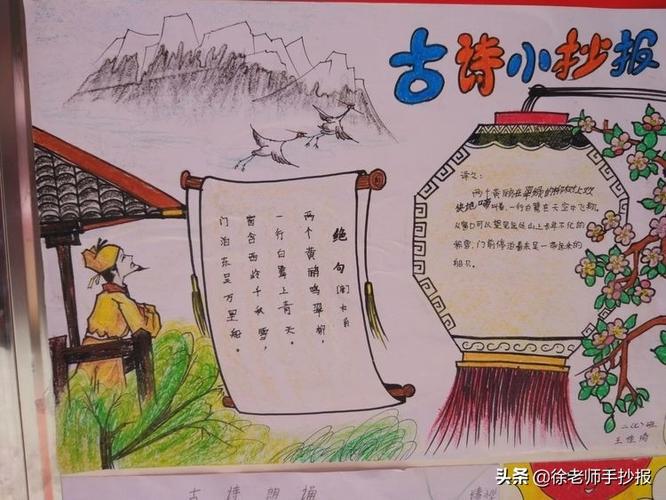 古诗小抄报
绝句[唐]杜甫
两个黄鹂鸣翠柳,
一行白鹭上青天。
窗含西岭千秋雪,
门泊东吴万里船。
译文:
两个黄鹂在翠绿的柳树上欢
快地鸣叫着,一行白鹭在天空中飞翔,
从窗口可以望见西岭山上千年不化的
积雪,门前停泊着来
船只。
二(七)班
王佳琦
古诗朗诵
头条 @徐老师手抄报